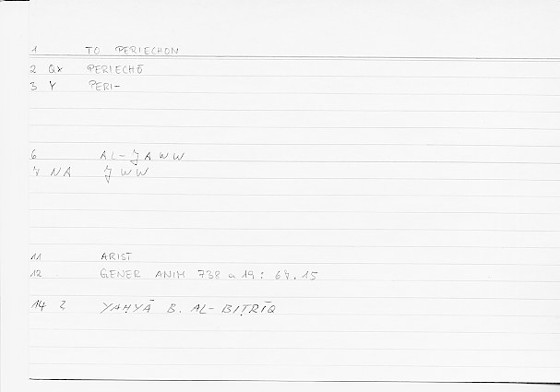 1 TO PERIECHON
2 Qx PERIECHŌ
3 Y PERI-
6 AL-JAWW
7 NA JWW
11 ARIST
12 GENER ANIM 738 a 19 : 64.15
14 2 YAḤYĀ B. AL-BIṬRĪQ